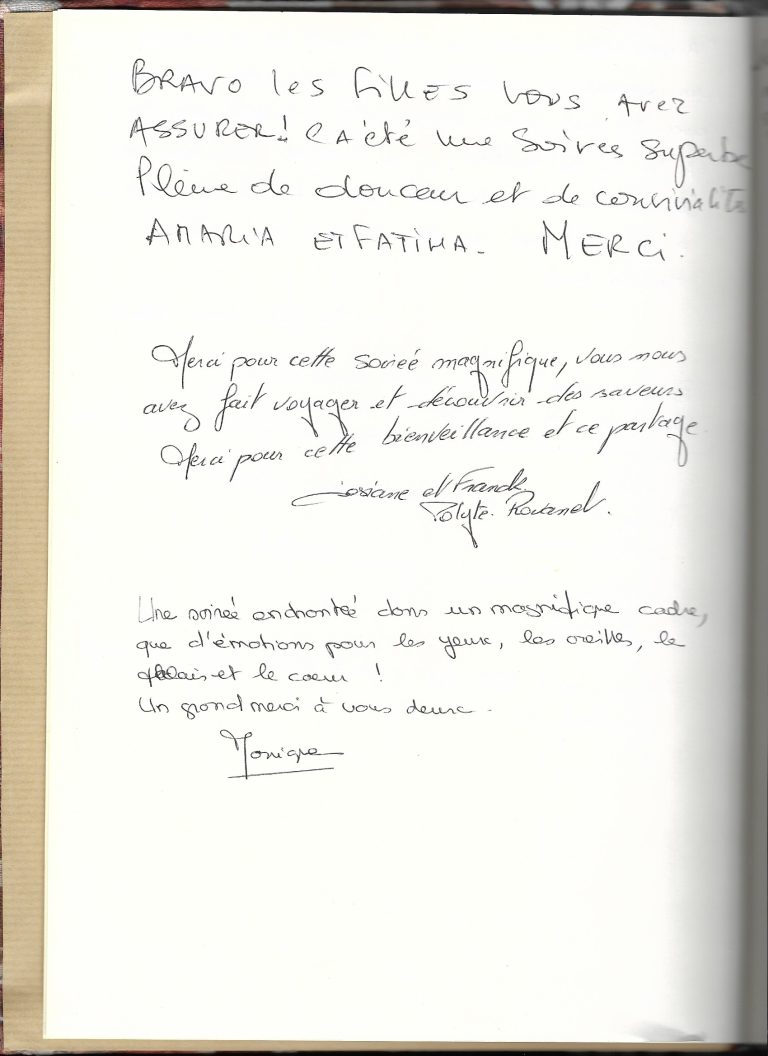 BRAVO les FILLES VOUS AVEZ
ASSURER! CA été une Soires superbe
Pleine de douceur et de convivialité
AMARIA ET FATIHA. MERCI.
Merci pour cette soireé magnifique, vous nous
avez fait voyager et découvrir des saveurs
Merci pour cette bienveillance et ce partage
Josiane et Franck
Une soireé enchantée dans un magnifique cadre,
que d'émotions pour les yeux, les oreilles, le
palais et le coeur !
Un grand merci à vous deux.
Monique